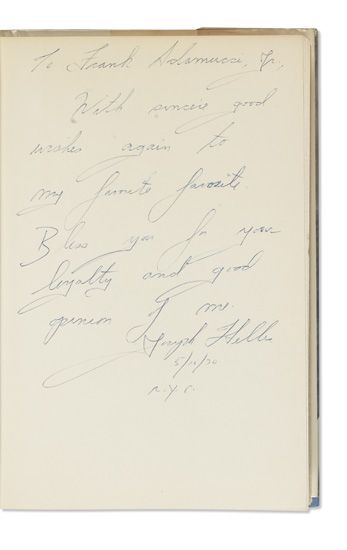 To Frank Adamucci, Jr,
With sincere good
wishes again to
my favorite favorite.
Bless you for your
loyalty and good
opinion of me.
Joseph Heller
N.Y.C.